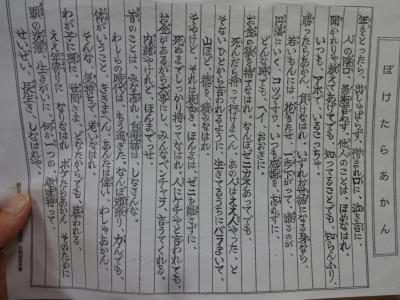 ぼけたらあかん
年をとったら、出しゃばらず、憎まれ口に、泣き言に、
人の陰口、愚痴言わず、他人のことは、ほめなはれ。
聞かれりゃ教えてあげてても、知ってることでも、知らんふり、
いつも、アホでいるこっちゃ。
勝ったらあかん、負けなはれ、いずれお世話になる身なら、
若いもんには、花もたせ、一歩さがって、譲るのが
円満にいく、コツですわ。いつも感謝を、忘れずに、
どんな時でも、へイ、おおきに。
お金の欲を、捨てなはれ、なんぼゼニカネあってても、
死んだら持って行けまへん。あの人はええ人やった、と
そないひとから言われるように、生きてるうちにバラまいて、
山ほど、徳を、積みなはれ。
そやけど、それは表向き、ほんまは、ゼニを離さずに、
死ぬまでしっかり持ってなはれ、人にケチやと言われても、
お金があるから大事にし、みんなベンチャラ、言うてくれる。
内緒やけれど、ほんまだっせ。
昔のことは、みな忘れ、自慢話は、しなさんな、
わしらの時代は、もう過ぎた、なんぼ頑張り、力んでも、
体がいうこと、ききまへん、あんたは偉い、わしゃあかん、
そんな、気持ちで、おりなはれ。
わが子に孫に、世間さま、どなたからでも、慕われる、
ええ年寄りに、なりなはれ、ボケたらあかん、そのために
頭の洗濯、生きがいに、何か一つの、趣味持って、
せいぜい、長生き、しなはれや。